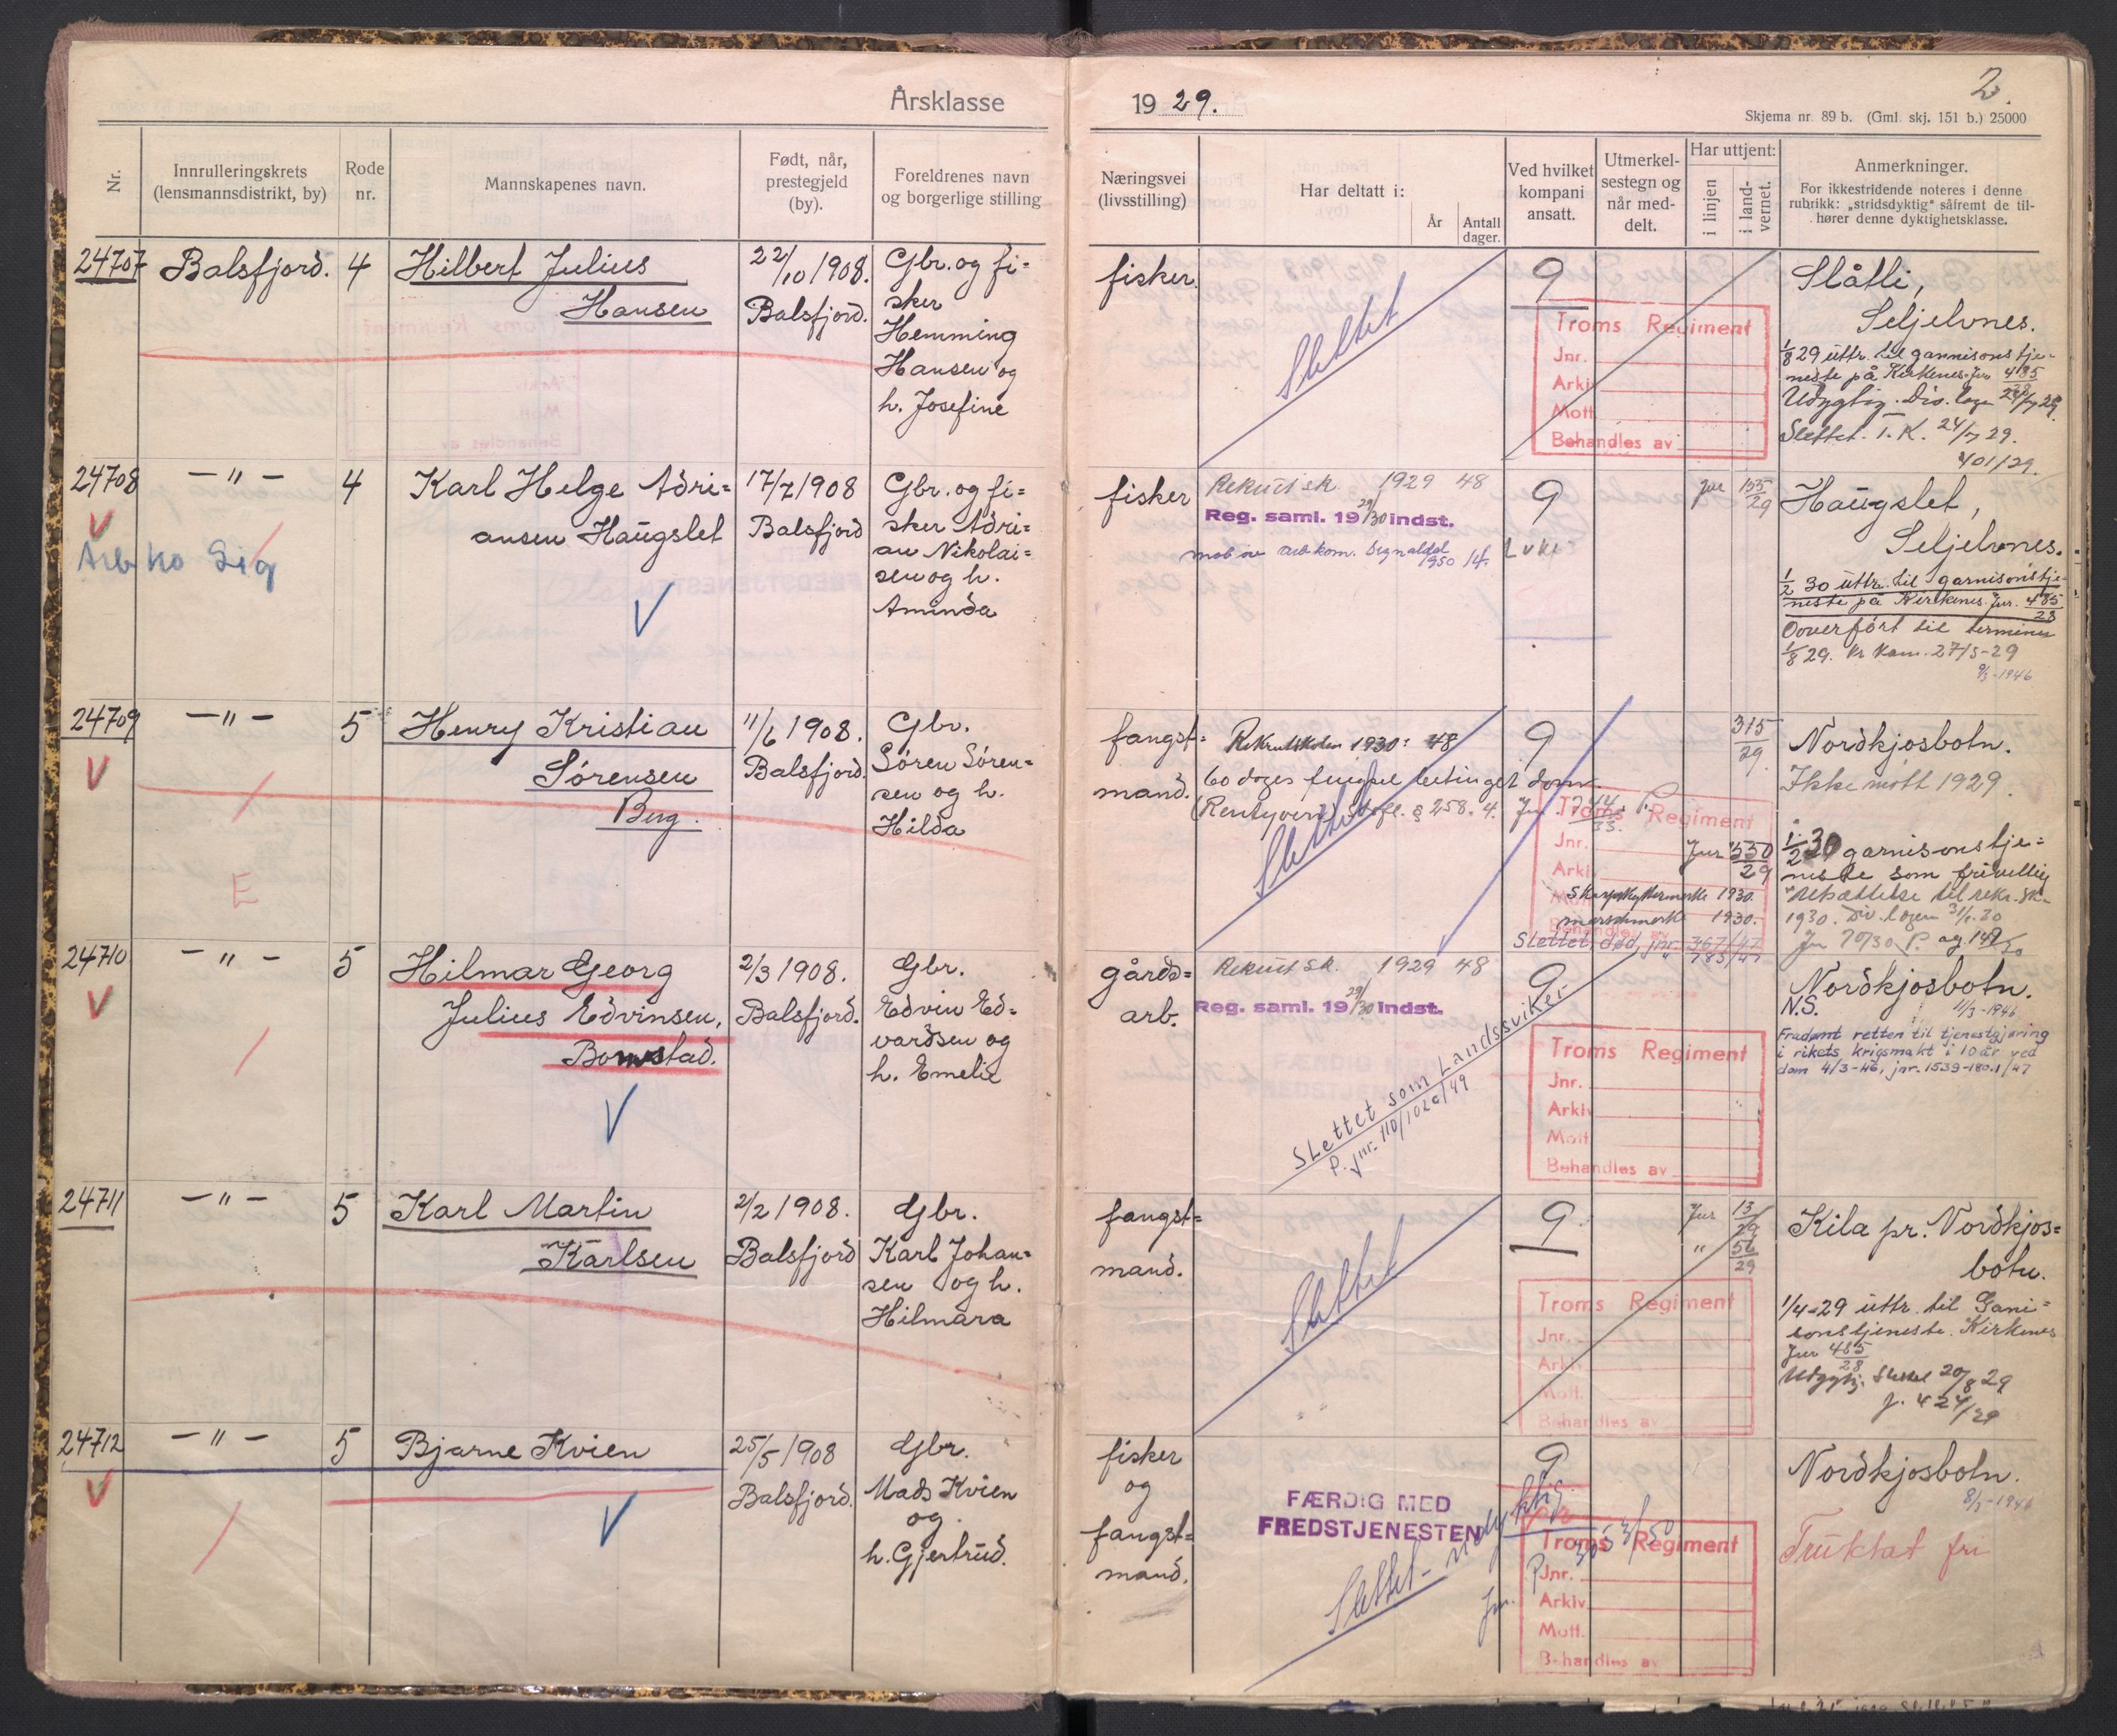 Årsklasse
1929.
2.
Skjema nr. 89 b. (Gml. skj. 151 b.) 25000
Nr.
Innrulleringskrets
(lensmannsdistrikt, by)
Rode
nr.
Mannskapenes navn.
Født, når,
prestegjeld
(by).
Foreldrenes navn
og borgerlige stilling
Næringsvei
(livsstilling)
Har deltatt i:
År
Antall
dager.
Ved hvilket
kompani
ansatt.
Utmerkel-
sestegn og
når med-
delt.
Har uttjent:
i linjen
i land-
vernet.
Anmerkninger.
For ikkestridende noteres i denne
rubrikk: „stridsdyktig“ såfremt de til-
hører denne dyktighetsklasse.
24707 Balsfjord. 4 Hilbert Julius
Hansen
22/10 1908.
Balsfjord.
Gbr. og fi=
sker
Hemming
Hansen og
h. Josefine
fisker.
Slettet
9
Troms Regiment
Jnr.
Arkiv
Mott
Behandles av
Slåtli,
Seljelvnes.
1/8 29 uttr. til garnisonstje-
neste på Kirkenes. Jnr 485/28
Div. logen 24/7 29
Slettet. T. K. 24/7 29.
401/29.
24708 — " — 4 Karl Helge Adri=
ansen Haugslet
17/7 1908
Balsfjord
Gbr. og fi=
sker Adri=
an Nikolai=
sen og h.
Aminda
V
Arb ko Sig
V
fisker
Rekrutsk. 1929 48
Reg. saml. 19 29/30 indst.
mob øv arb kom. Signaldal
1950 14
9
Jnr 155/29
Haugslet,
Seljelvnes.
1/2 30 uttr. til garnisonstje-
neste på Kirkenes. Jnr. 485/28
Overført til terminen
1/8 29. Kr Kom. 27/5-29
9/3-1946
24709 — " — 5 Henry Kristian
Sørensen
Berg.
11/6 1908.
Balsfjord.
Gbr.
Søren Søren=
sen og h.
Hilda
V
E
fangst=
mand.
Rekrutskolen 1930: 48
60 dages fengsel betinget dom.
§ 258. 4.
Slettet
9
315/29
Jnr 530/29
Troms Regiment
Jnr.
Arkiv
Skarpskyttermerke 1930.
marschmerke 1930.
Slettet, død, jnr. 367/47
Nordkjosbotn.
Ikke møtt 1929.
1/2 30 garnisonstje=
neste som frivillig
Utsættelse til rekr. sk.
1930. Div. logen 31/1. 30
24710 — " — 5 Hilmar Georg
Julius Edvinsen,
Bomstad.
2/3 1908.
Balsfjord.
Gbr.
Edvin Ed=
vardsen og
h. Emelie
V
V
gårds=
arb.
Rekrutsk. 1929 48
Reg. saml. 19 29/30 indst.
Slettet som Landssviker
P. jnr. 110/1020/49
9
Troms Regiment
Jnr.
Arkiv
Mott
Behandles av
Nordkjosbotn.
N.S. 11/3-1946
Fradømt retten til tjenestgjøring
i rikets krigsmakt i 10 år ved
dom 4/3-46, jnr. 1539-180.1/47
24711 — " — 5 Karl Martin
Karlsen
2/2 1908.
Balsfjord
Gbr.
Karl Johan=
sen og h.
Hilmara
fangst=
mand.
Slettet
9
Jnr 13/29
" 56/29
Troms Regiment
Jnr.
Arkiv
Mott.
Behandles av
Kila pr. Nordkjos=
botn.
1/4-29 uttr. til Gani=
sonstjeneste. Kirkenes
Jnr 485/28
20/8 29
J. 424/29
24712 — " — 5 Bjarne Kvien
25/5 1908
Balsfjord.
Gbr.
Mads Kvien
og
h. Gjertrud.
V
V
fisker
og
fangst=
mand.
FÆRDIG MED
FREDSTJENESTEN
Slettet - udyktig
9
Troms Regiment
Jnr.
Arkiv
Mott.
Behandles av
Nordkjosbotn.
8/3-1946